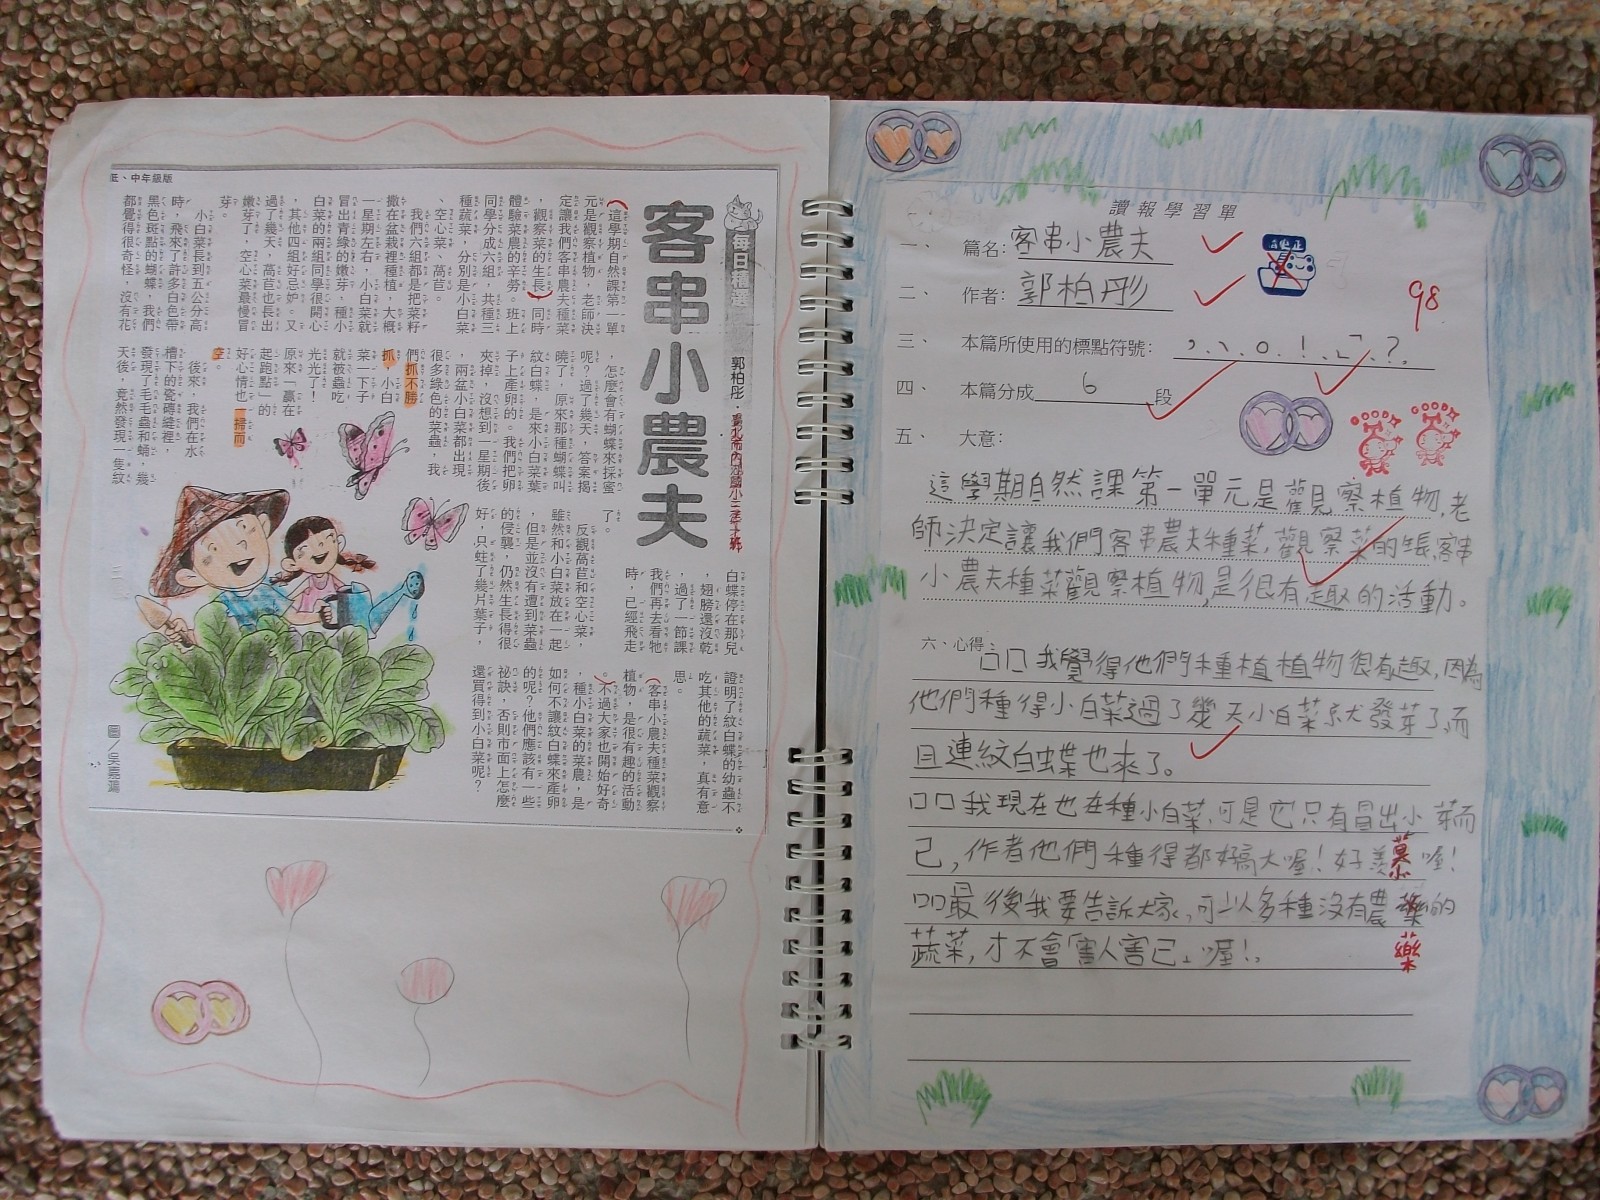 低、中年級版
每日精選
客串小農夫
郭柏彤．臺北市內湖國小三年十班
(這學期自然課第一單
元是觀察植物，老師決
定讓我們客串農夫種菜
，觀察菜的生長)，同時
體驗菜農的辛勞。班上
同學分成六組，共種三
種蔬菜，分別是小白菜
、空心菜、萵苣。
我們六組都是把菜籽
撒在盆栽裡種植，大概
一星期左右，小白菜就
冒出青綠的嫩芽，種小
白菜的兩組同學很開心
，其他四組好忌妒。又
過了幾天，萵苣也長出
嫩芽了，空心菜最慢冒
芽。
小白菜長到五公分高
時，飛來了許多白色帶
黑色斑點的蝴蝶，我們
都覺得很奇怪，沒有花
，怎麼會有蝴蝶來採蜜
呢？過了幾天，答案揭
曉了，原來那種蝴蝶叫
紋白蝶，是來小白菜葉
子上產卵的。我們把卵
夾掉，沒想到一星期後
，兩盆小白菜都出現
很多綠色的菜蟲，我
們抓不勝
抓，小白
菜一下子
就被蟲吃
光光了！
原來「贏在
起跑點」的
好心情也一掃而
空。
後來，我們在水
槽下的瓷磚縫裡，
發現了毛毛蟲和蛹，幾
天後，竟然發現一隻紋
白蝶停在那兒
，翅膀還沒乾
，過了一節課
我們再去看牠
時，已經飛走
了。
反觀萵苣和空心菜，
雖然和小白菜放在一起
，但是並沒有遭到菜蟲
的侵襲，仍然生長得很
好，只蛀了幾片葉子，
證明了紋白蝶的幼蟲不
吃其他的蔬菜，真有意
思。
(客串小農夫種菜觀察
植物，是很有趣的活動
)。不過大家也開始好奇
，種小白菜的菜農，是
如何不讓紋白蝶來產卵
的呢？他們應該有一些
祕訣，否則市面上怎麼
還買得到小白菜呢？
圖／吳嘉鴻
讀報學習單
一、 篇名：客串小農夫
二、 作者：郭柏彤
98
三、 本篇所使用的標點符號：，、。！「」？
四、 本篇分成 6 段
五、 大意：
這學期自然課第一單元是觀察植物，老
師決定讓我們客串農夫種菜，觀察菜的生長，客串
小農夫種菜觀察植物，是很有趣的活動。
六、心得：口口我覺得他們種植植物很有趣，因為
他們種得小白菜過了幾天小白菜就發芽了，而
且連紋白蝶也來了。
口口我現在也在種小白菜，可是它只有冒出小芽而
已，作者他們種得都好高大喔！好羨慕喔！
口口最後我要告訴大家，可以多種沒有農藥的
藥
蔬菜，才不會「害人害己」喔！